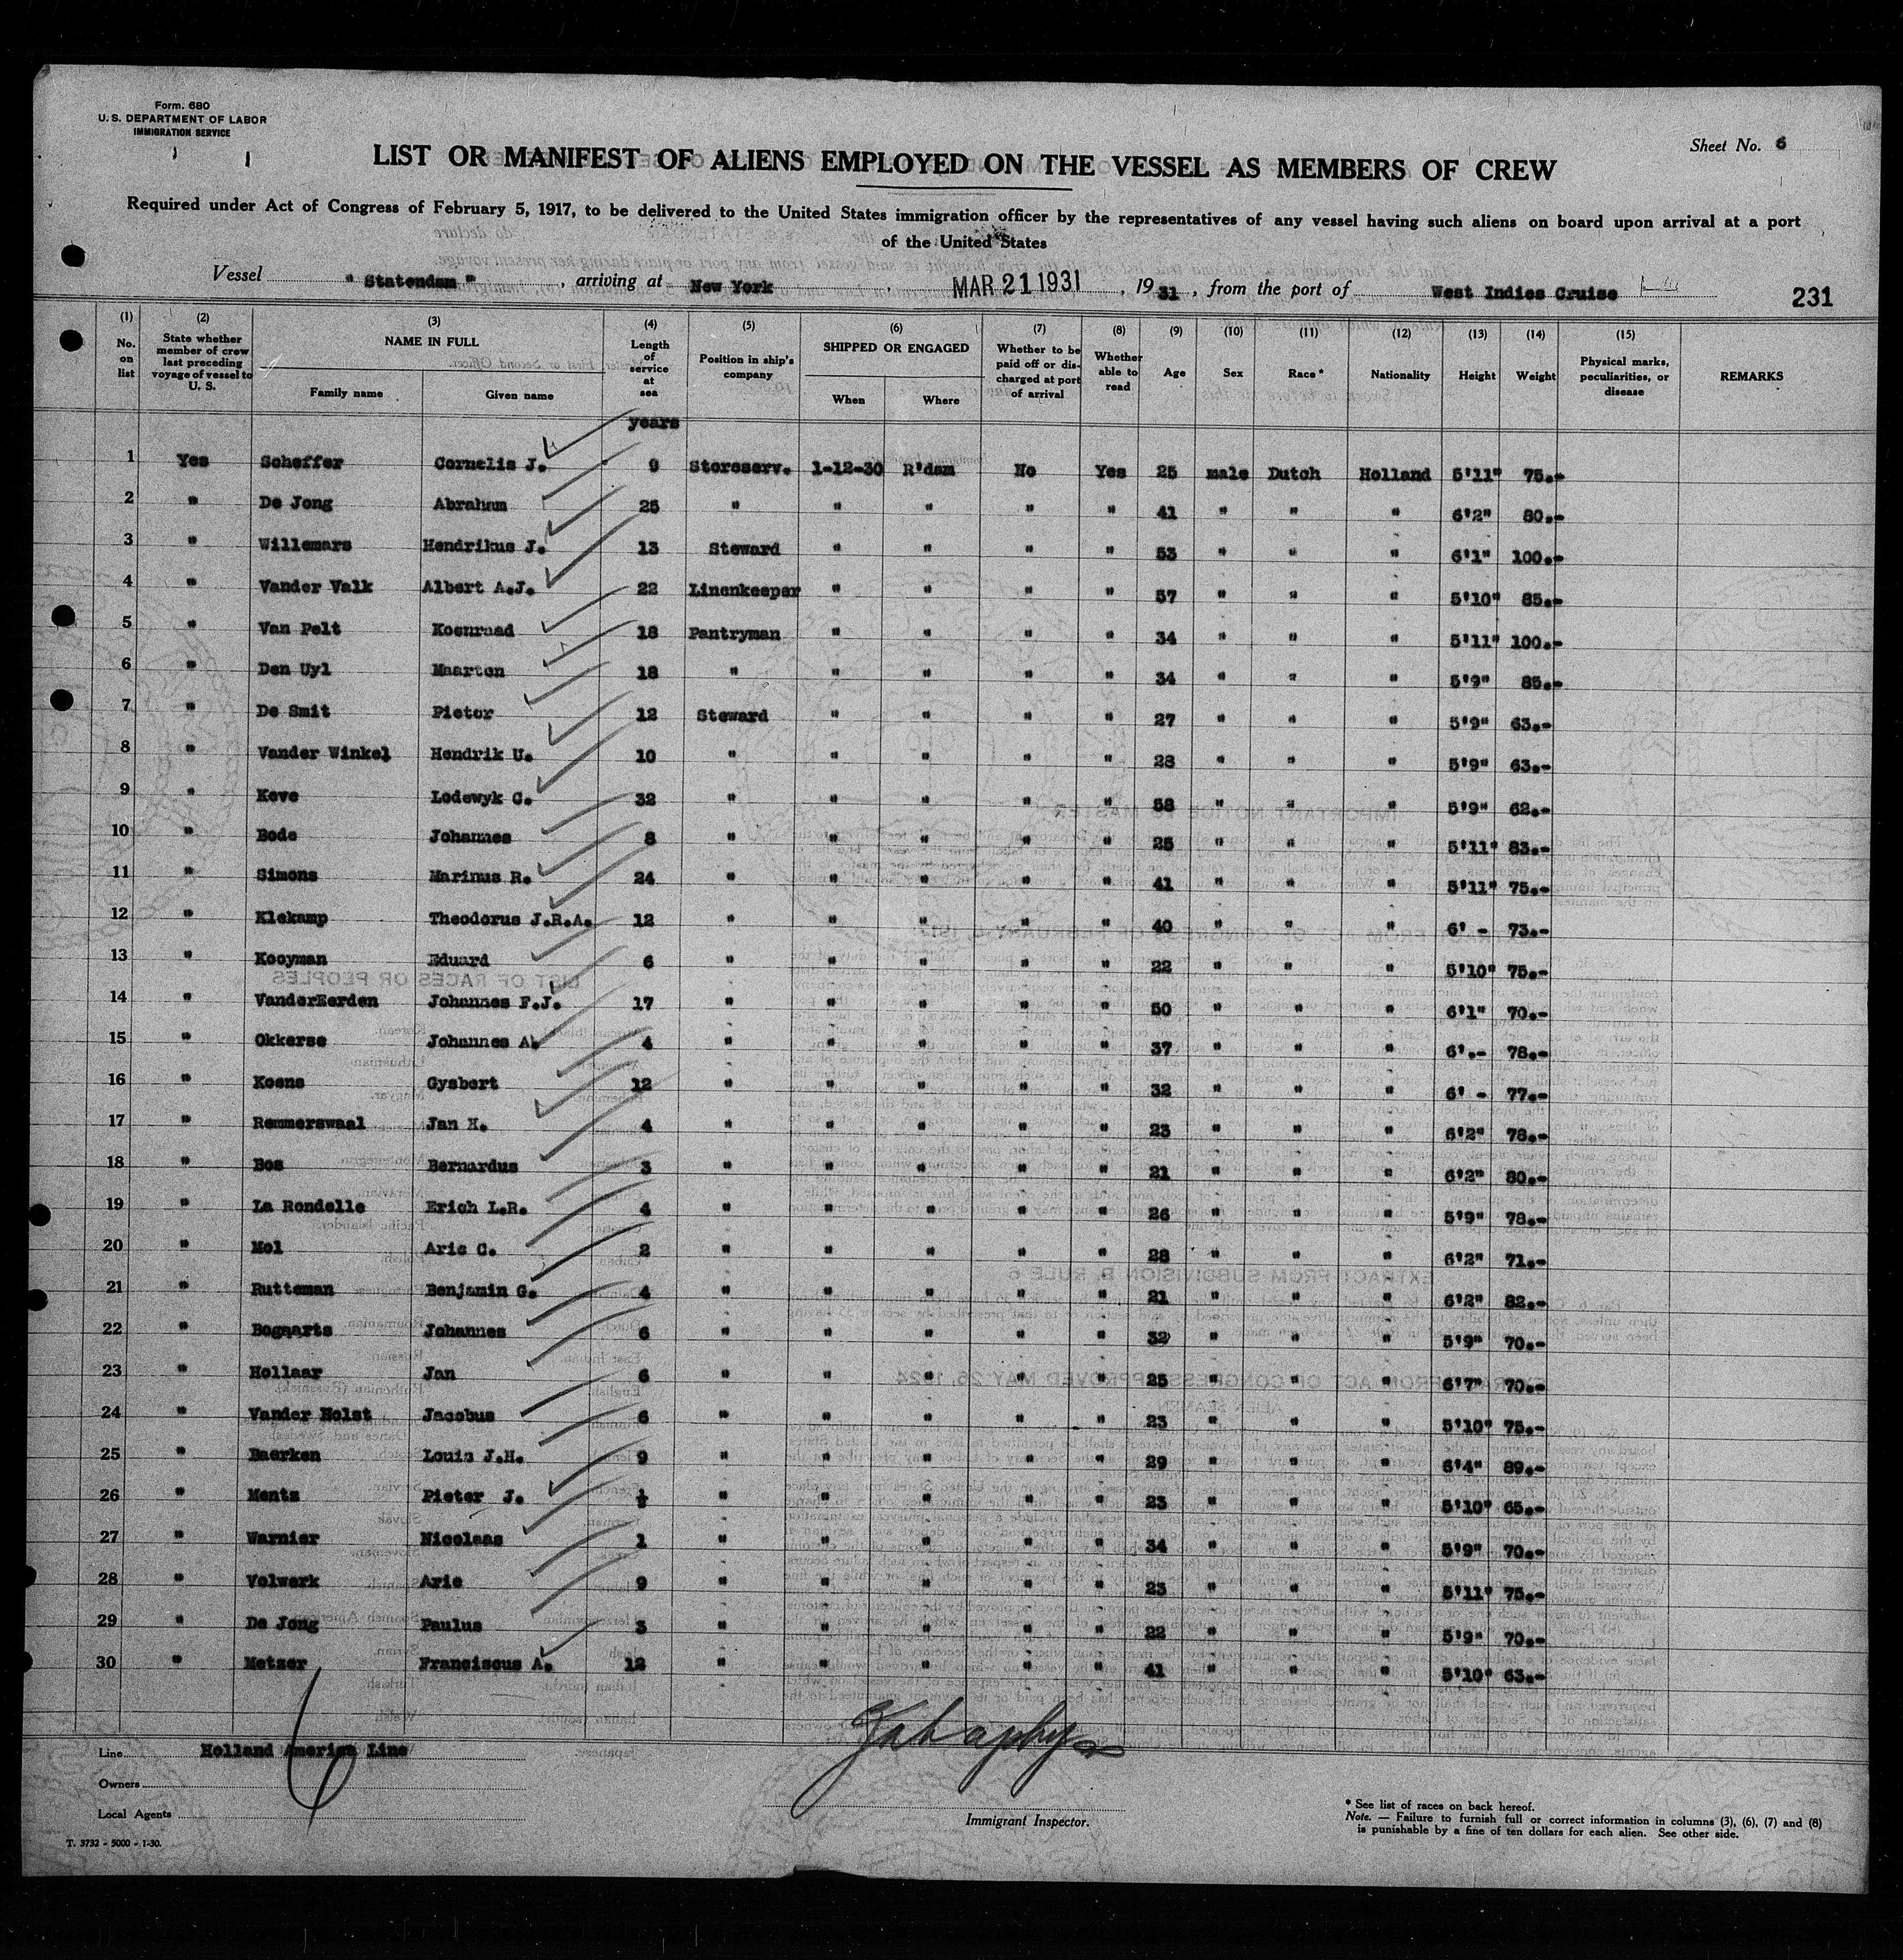 Form. 680
U. S. DEPARTMENT OF LABOR
IMMIGRATION SERVICE
Sheet No. 6
LIST OR MANIFEST OF ALIENS EMPLOYED ON THE VESSEL AS MEMBERS OF CREW
Required under Act of Congress of February 5, 1917, to be delivered to the United States immigration officer by the representatives of any vessel having such aliens on board upon arrival at a port
of the United States
Vessel " Statendam ", arriving at New York, MAR 21 1931, 19 31, from the port of West Indies Cruise
231
(1) No. on list (2) State whether member of crew last preceding voyage of vessel to U. S. (3) NAME IN FULL Family name Given name (4) Length of service at sea (5) Position in ship's company (6) SHIPPED OR ENGAGED When Where (7) Whether to be paid off or discharged at port of arrival (8) Whether able to read (9) Age (10) Sex (11) Race * (12) Nationality (13) Height (14) Weight (15) Physical marks, peculiarities, or disease REMARKS
years
1 Yes Scheffer Cornelis J. 9 Storeserv. 1-12-30 R'dam No Yes 25 male Dutch Holland 5'11" 75.-
2 " De Jong Abraham 25 " " " " " 41 " " " 6'2" 80.-
3 " Willemars Hendrikus J. 13 Steward " " " " 53 " " " 6'1" 100.-
4 " Vander Valk Albert A.J. 22 Linenkeeper " " " " 57 " " " 5'10" 85.-
5 " Van Pelt Koenraad 18 Pantryman " " " " 34 " " " 5'11" 100.-
6 " Den Uyl Maarten 18 " " " " " 34 " " " 5'9" 85.-
7 " De Smit Pieter 12 Steward " " " " 27 " " " 5'9" 63.-
8 " Vander Winkel Hendrik U. 10 " " " " " 28 " " " 5'9" 63.-
9 " Keve Lodewyk C. 32 " " " " " 58 " " " 5'9" 62.-
10 " Bode Johannes 8 " " " " " 25 " " " 5'11" 83.-
11 " Simons Marinus R. 24 " " " " " 41 " " " 5'11" 75.-
12 " Klekamp Theodorus J.R.A. 12 " " " " " 40 " " " 6' - 73.-
13 " Kooyman Eduard 6 " " " " " 22 " " " 5'10" 75.-
14 " VanderEerden Johannes F.J. 17 " " " " " 50 " " " 6'1" 70.-
15 " Okkerse Johannes A. 4 " " " " " 37 " " " 6'.- 78.-
16 " Koens Gysbert 12 " " " " " 32 " " " 6' - 77.-
17 " Remmerswaal Jan H. 4 " " " " " 23 " " " 6'2" 78.-
18 " Bos Bernardus 3 " " " " " 21 " " " 6'2" 80.-
19 " La Rondelle Erich L.R. 4 " " " " " 26 " " " 5'9" 78.-
20 " Mol Arie C. 2 " " " " " 28 " " " 6'2" 71.-
21 " Rutteman Benjamin G. 4 " " " " " 21 " " " 6'2" 82.-
22 " Bogaarts Johannes 6 " " " " " 32 " " " 5'9" 70.-
23 " Hollaar Jan 6 " " " " " 25 " " " 6'7" 70.-
24 " Vander Holst Jacobus 6 " " " " " 23 " " " 5'10" 75.-
25 " Baerken Louis J.H. 9 " " " " " 29 " " " 6'4" 89.-
26 " Mentz Pieter J. ½ " " " " " 23 " " " 5'10" 65.-
27 " Warnier Nicolaas 1 " " " " " 34 " " " 5'9" 70.-
28 " Volwerk Arie 9 " " " " " 23 " " " 5'11" 75.-
29 " De Jong Paulus 3 " " " " " 22 " " " 5'9" 70.-
30 " Metzer Franciscus A. 12 " " " " " 41 " " " 5'10" 63.-
Line Holland America Line
Owners
Local Agents
T. 3732 - 5000 - 1-30.
Immigrant Inspector.
* See list of races on back hereof.
Note. — Failure to furnish full or correct information in columns (3), (6), (7) and (8)
is punishable by a fine of ten dollars for each alien. See other side.